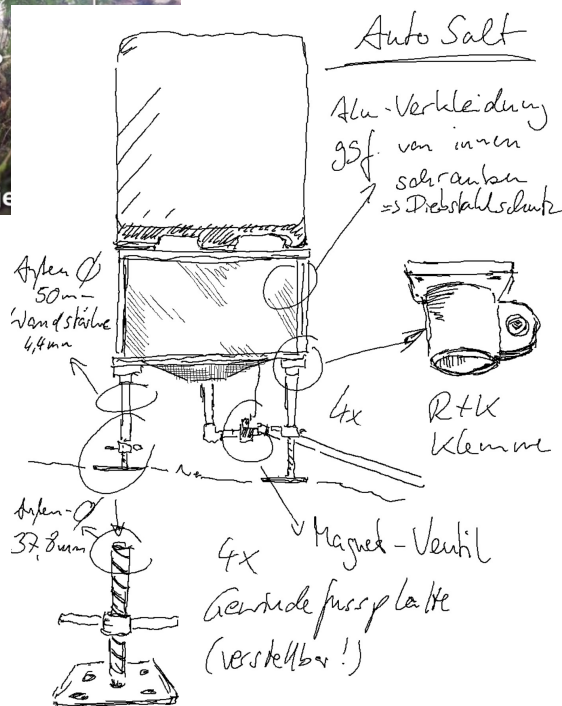 Auto Salt
Alu-Verkleidung
ggf. von innen
schrauben
=> Diebstahlschutz
Außen Ø
50mm
Wandstärke
4,4mm
4x
R+K
Klemme
Außen-Ø
37,8mm
4x
Magnet-Ventil
Gewindefussplatte
(verstellbar!)